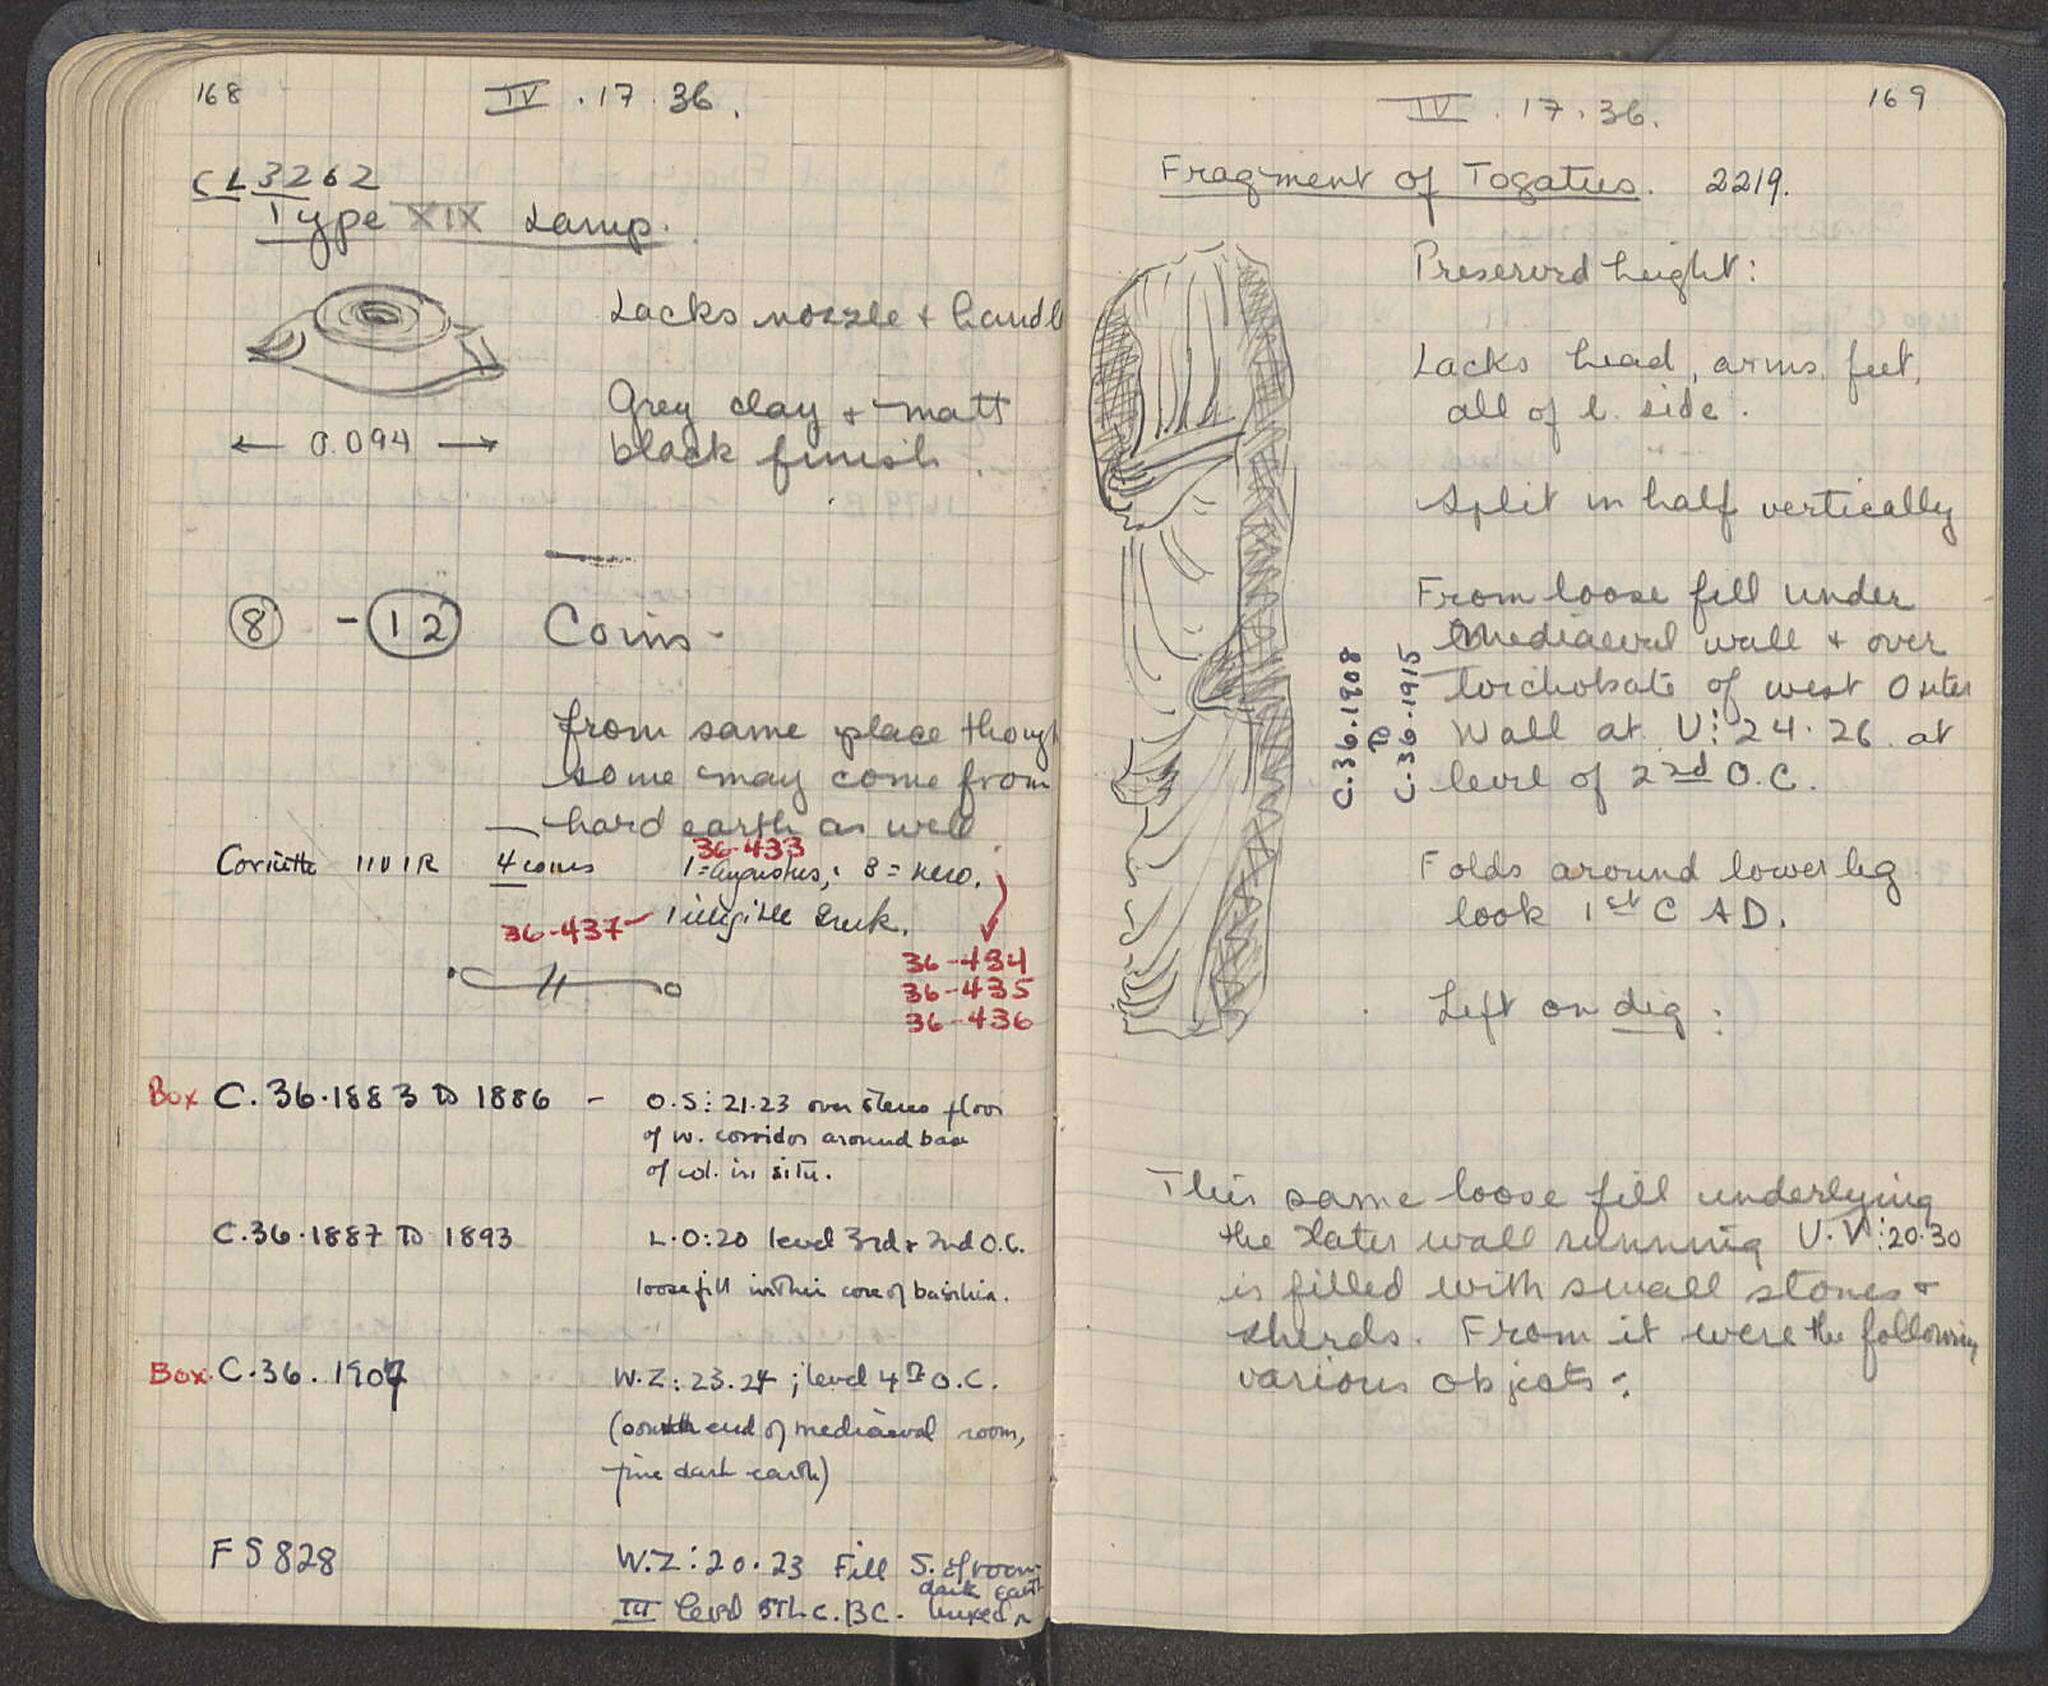 168
IV . 17 . 36.
CL 3262
Type XIX Lamp.
Lacks nozzle + handle
Grey clay + matt
black finish.
← 0.094 →
8 - 12 Coins -
from same place though
some may come from
hard earth as well
36-433
IIVIR 4 coins 1 = Augustus, 3 = Nero.
36-437 - 1 illegible Greek.
36-434
36-435
36-436
Box C. 36.1883 to 1886 - O.S:21.23 over stereo floor
of w. corridor around base
of col. in situ.
C.36.1887 to 1893 L.O:20 level 3rd + 2nd O.C.
loose fill within core of basilica.
Box. C.36. 1907 W.Z:23.24; level 4th O.C.
(south end of mediaeval room,
fine dark earth)
FS 828 W.Z:20.23 Fill S. of room
dark earth
III level 5th c. BC. mixed in
169
IV . 17 . 36.
Fragment of Togatus. 2219.
Preserved height:
Lacks head, arms, feet,
all of l. side.
Split in half vertically
From loose fill under
Mediaeval wall + over
toichobate of west Outer
Wall at U:24.26 at
level of 2nd O.C.
C.36.1908
to
C.36.1915
Folds around lower leg
look 1st C AD.
Left on dig:
This same loose fill underlying
the later wall running U.V:20.30
is filled with small stones +
sherds. From it were the following
various objects: